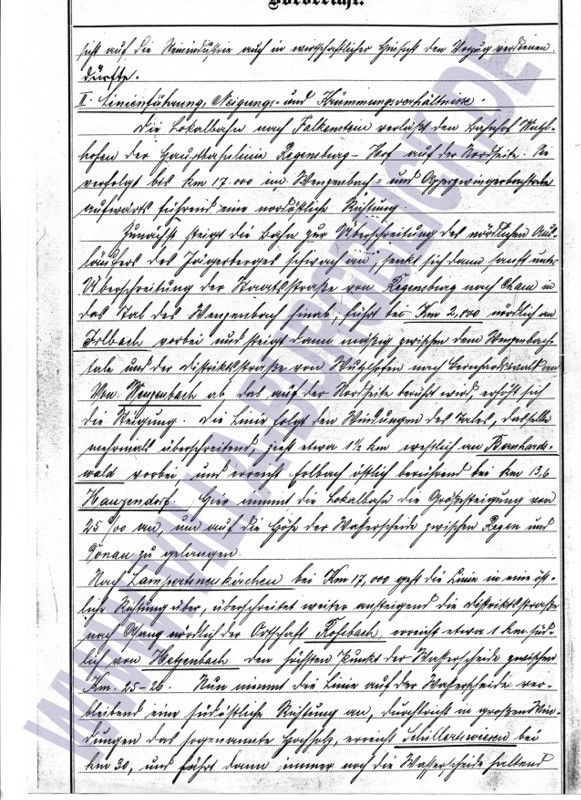 Vorbericht.
sicht auf die Steinindustrie auch in wirtschaftlicher Hinsicht den Vorzug verdienen
dürfte.
II. Linienführung, Neigungs- und Krümmungsverhältnisse.
Die Lokalbahn nach Falkenstein verläßt den Bahnhof Wutzl-
hofen der Hauptbahnlinie Regensburg – Hof auf der Nordseite. Sie
verfolgt bis km 17.000 im Wenzenbach- und
aufwärts führend eine nordöstliche Richtung.
Zunächst steigt die Bahn zur Überschreitung des nördlichen Aus-
läufers des schwach an, senkt sich dann sanft unter
Überschreitung der Staatsstraße von Regensburg nach Cham in
das Tal des Wenzenbach hinab, führt bei Km 2,800 nördlich an
Irlbach vorbei und steigt dann mäßig zwischen dem Wenzenbach-
tale und der Distriktsstraße von Wutzlhofen nach Bernhardswald an.
Von Wenzenbach ab das auf der Nordseite berührt wird, erhöht sich
die Steigung. Die Linie folgt den Windungen des Tales, dasselbe
mehrmals überschreitend, zieht etwa 1½ km westlich an Bernhards-
wald vorbei, und erreicht Erlbach östlich berührend bei km 13,6
Hauzendorf. Hier nimmt die Lokalbahn die Größtsteigung von
25 ‰ an, um auf die Höhe der Wasserscheide zwischen Regen und
Donau zu gelangen.
Nach Lampertsneukirchen bei Km 17,000 geht die Linie in eine öst-
liche Richtung über, überschreitet weiter ansteigend die Distriktsstraße
nach nördlich der Ortschaft Roßbach, erreicht etwa 1 km süd-
lich von Hetzenbach den höchsten Punkt der Wasserscheide zwischen
Km. 25-26. Nun nimmt die Linie auf der Wasserscheide ver-
bleibend eine südöstliche Richtung an, durchbricht in großen Win-
dungen das sogenannte Hochholz, erreicht Schillertswiesen bei
km 30, und führt dann immer noch die Wasserscheide haltend
WWW.LABURGBLICK.DE